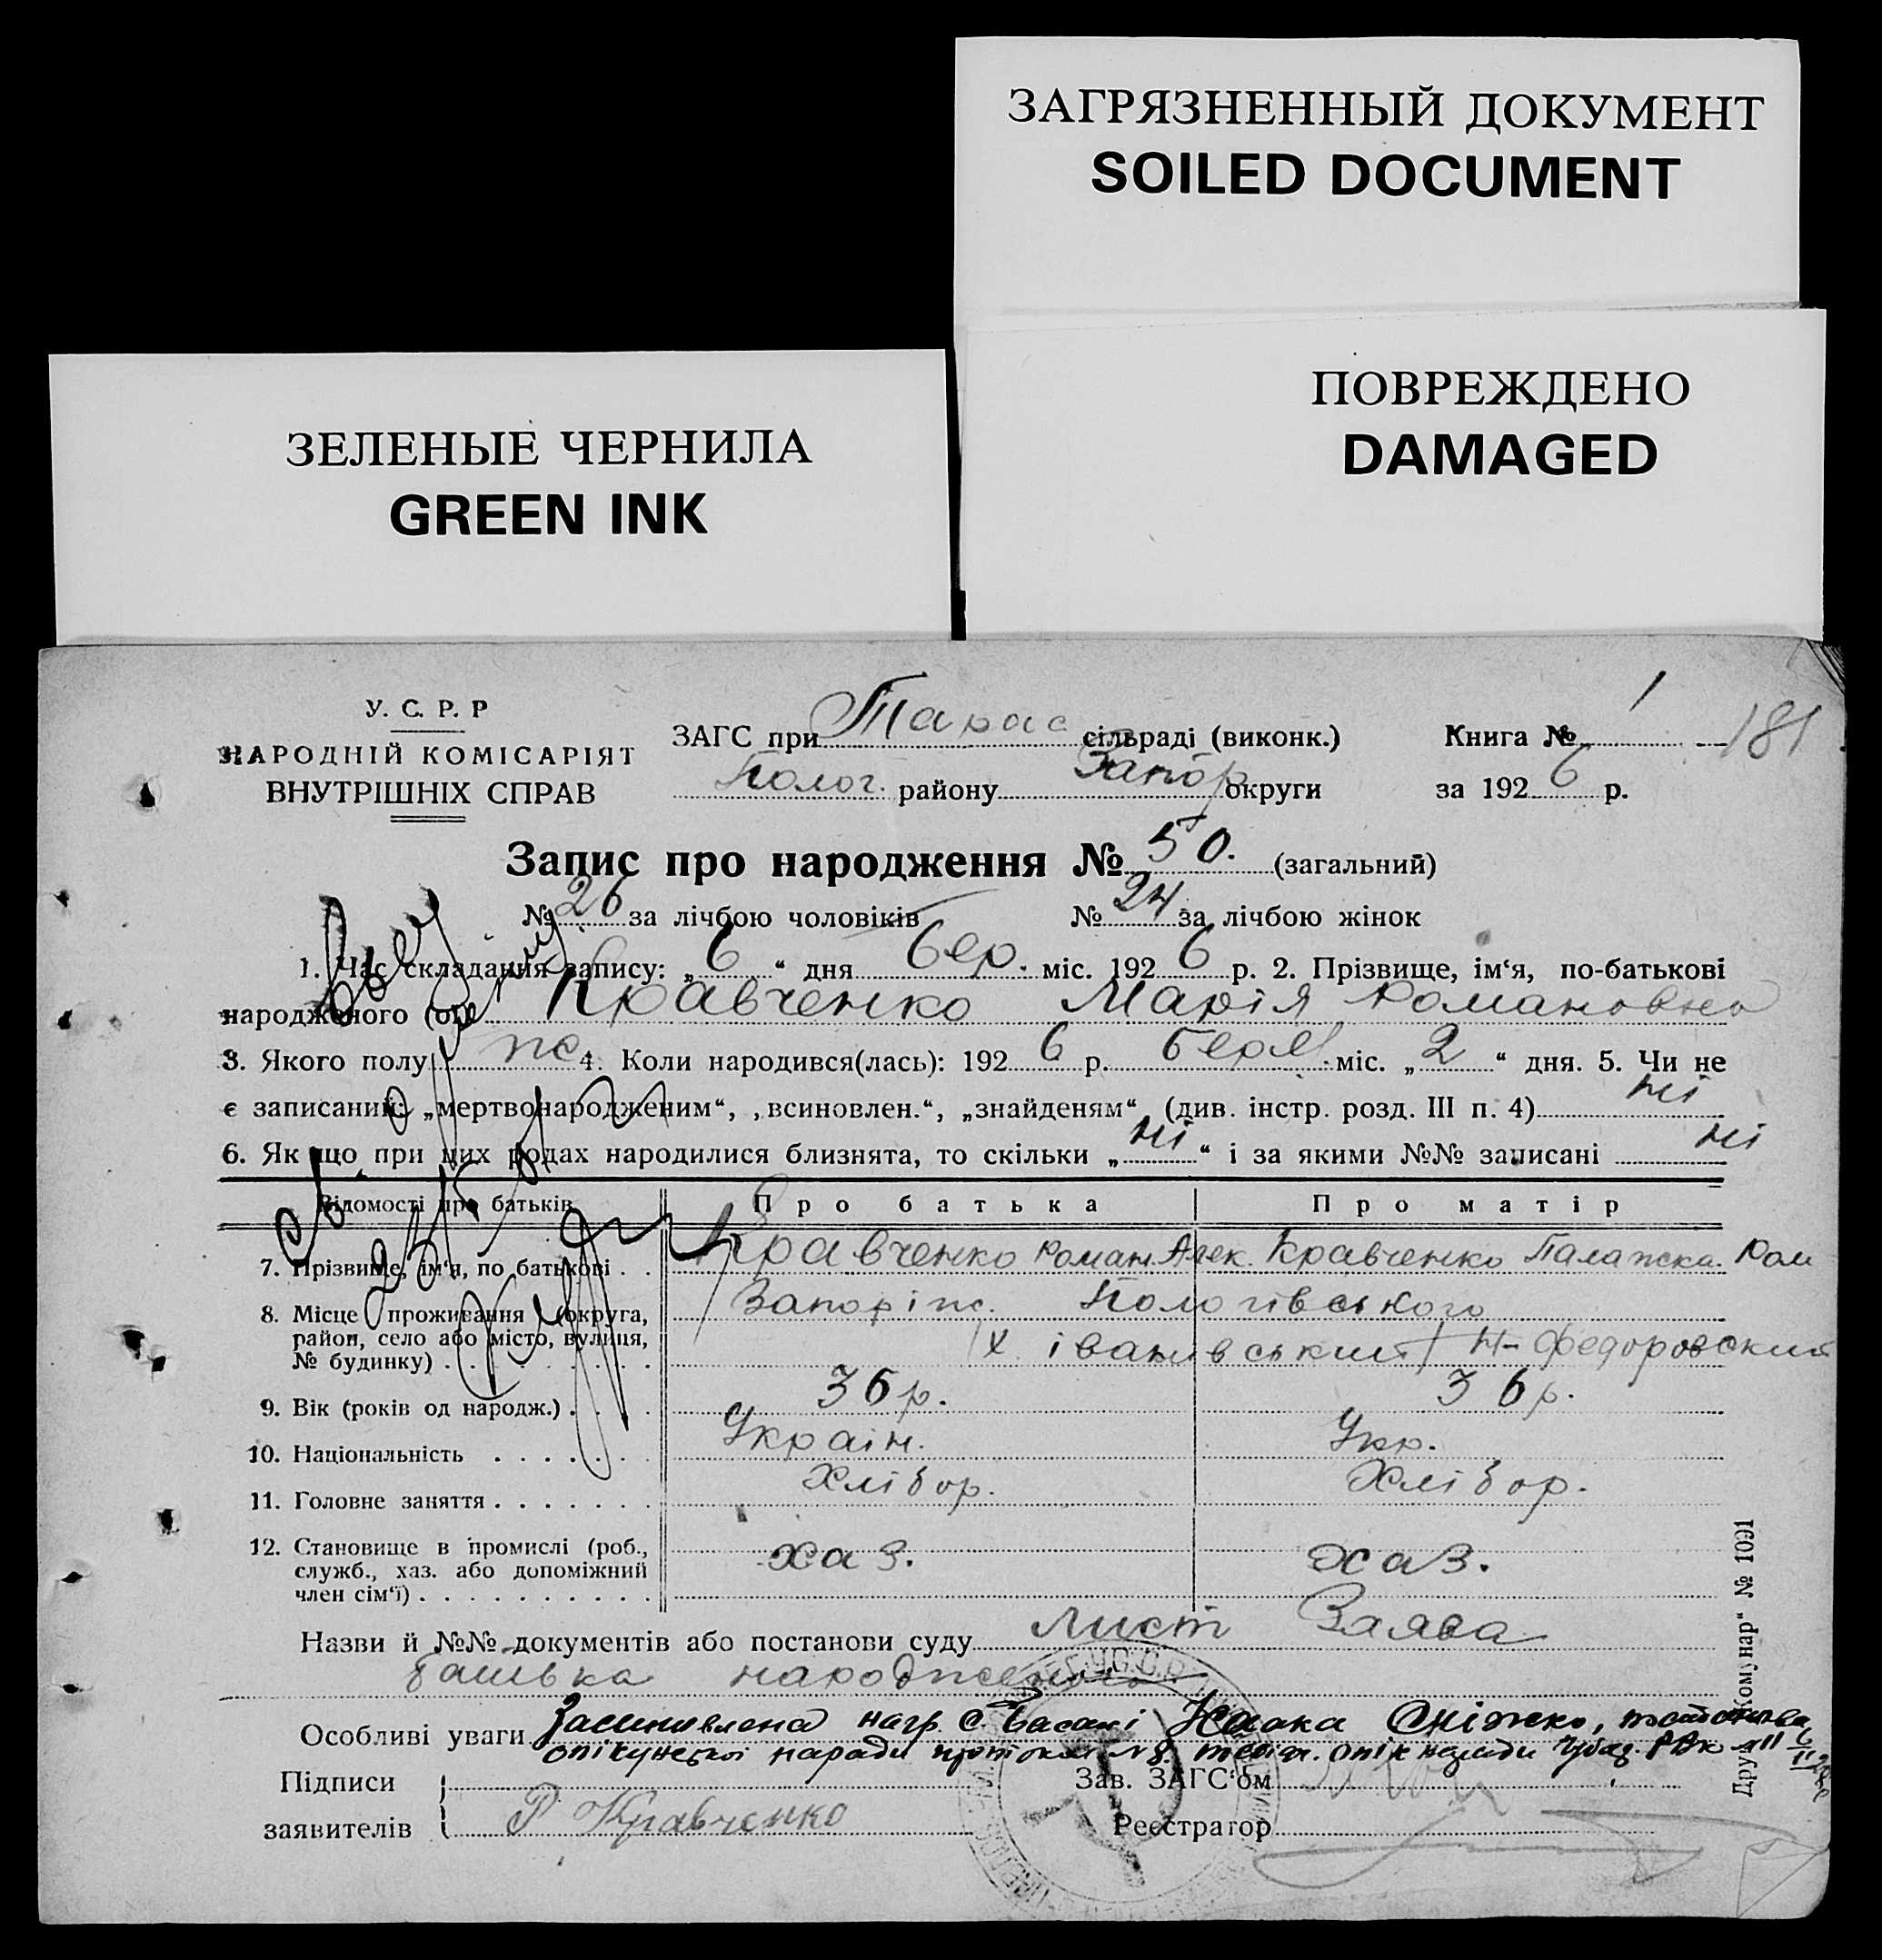 ЗАГРЯЗНЕННЫЙ ДОКУМЕНТ
SOILED DOCUMENT
ПОВРЕЖДЕНО
DAMAGED
ЗЕЛЕНЫЕ ЧЕРНИЛА
GREEN INK
У. С. Р. Р
НАРОДНІЙ КОМІСАРІЯТ
ВНУТРІШНІХ СПРАВ
ЗАГС при Тарас сільраді (виконк.) Книга № 1 181
Полог. району Запор округи за 1926 р.
Запис про народження № 50. (загальний)
№ 26 за лічбою чоловіків № 24 за лічбою жінок
1. Час складання запису: „6“ дня бер. міс. 1926 р. 2. Прізвище, ім‘я, по-батькові
народженого (ої) Кравченко Марія Романовна
3. Якого полу жс 4. Коли народився(лась): 1926 р. міс. „2“ дня. 5. Чи не
є записаний: „мертвонародженим“, „всиновлен.“, „знайденям“ (див. інстр. розд. III п. 4) ні
6. Як що при цих родах народилися близнята, то скільки „ні“ і за якими №№ записані ні
Відомості про батьків Про батька Про матір
7. Прізвище, ім‘я, по батькові Кравченко Роман. Алек. Кравченко Палажка. Ром
8. Місце проживання (округа, район, село або місто, вулиця, № будинку) Запоріж. Пологівського
х іванівський Н-Федоровский
9. Вік (років од народж.) 36 р. 36 р.
10. Національність Україн. Укр.
11. Головне заняття Хлібор. Хлібор.
12. Становище в промислі (роб., служб., хаз. або допоміжний член сім‘ї) хаз. хаз.
Назви й №№ документів або постанови суду лист Заява
батька народженого
Особливі уваги Засиновлена гр. с. Басані Сніжко,
опікунської наради протокол опік наради РВК
Підписи Зав. ЗАГС‘ом
заявителів Р Кравченко Реєстратор
Комунар“ № 1091